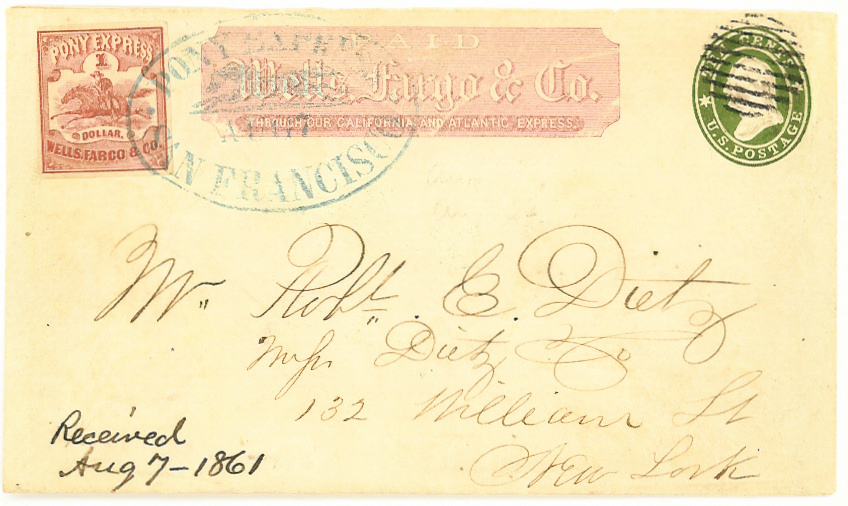 PONY EXPRESS
1
DOLLAR.
WELLS, FARGO & CO.
PONY EXPRESS
SAN FRANCISCO
PAID
Wells Fargo & Co.
THROUGH OUR CALIFORNIA AND ATLANTIC EXPRESS.
TEN CENTS
U.S. POSTAGE
Mr. Robt. E. Dietz
Dietz & Co
132 William St
New York
Received
Aug 7-1861